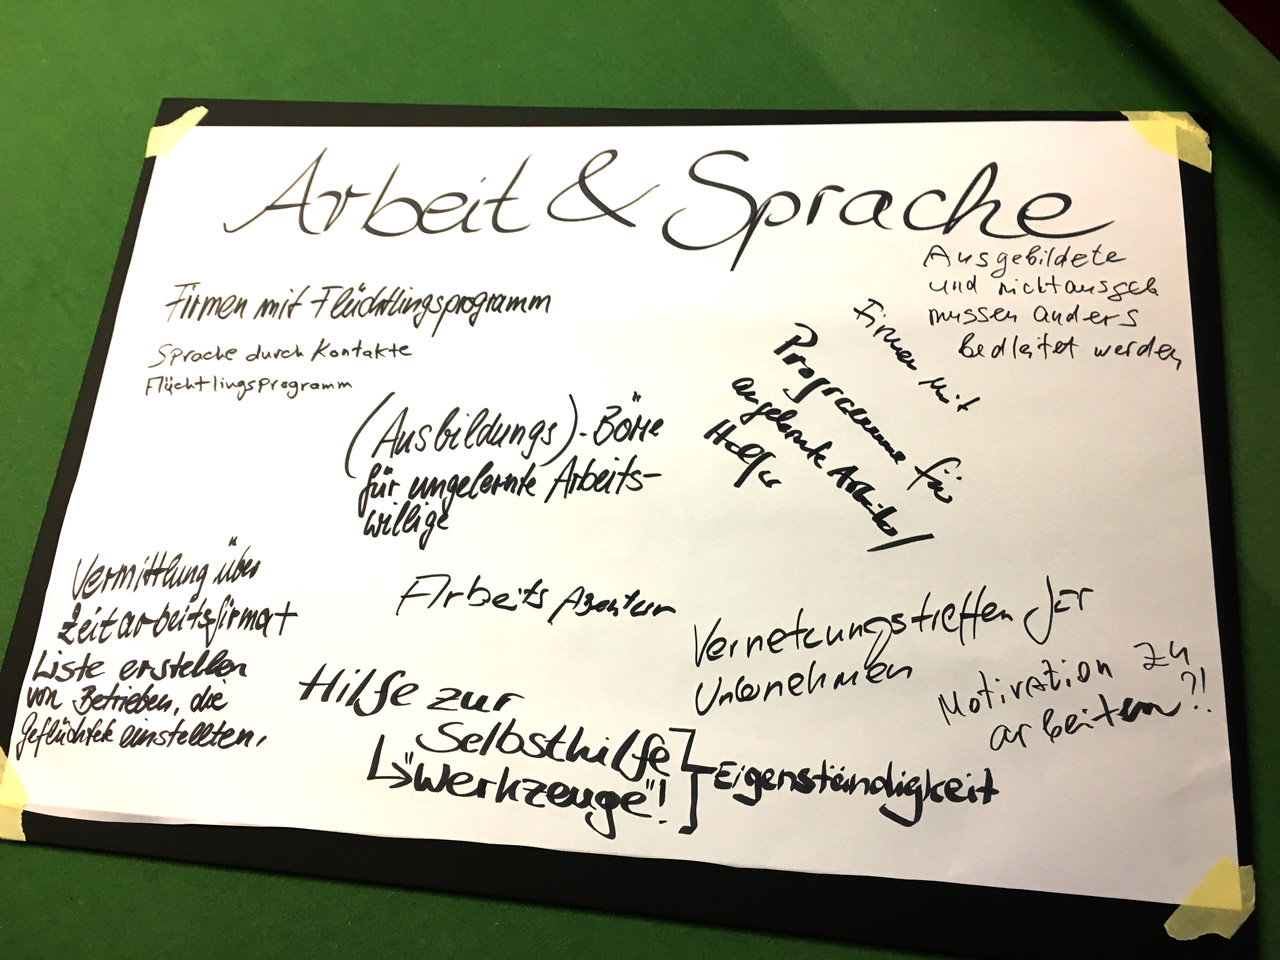 Arbeit & Sprache
Firmen mit Flüchtlingsprogramm
Sprache durch Kontakte
Flüchtlingsprogramm
Ausgebildete
und nichtausgeb
müssen anders
werden
Firmen mit
Programme für
angelernte Arbeiter/
Helfer
(Ausbildungs)-Börse
für ungelernte Arbeits-
willige
Vermittlung über
Liste erstellen
von Betrieben, die
einstellten.
Arbeits Agentur
Vernetzungstreffen für
Unternehmen
Motivation zu
arbeiten?!
Hilfe zur
Selbsthilfe
↳"Werkzeuge"!
Eigenständigkeit